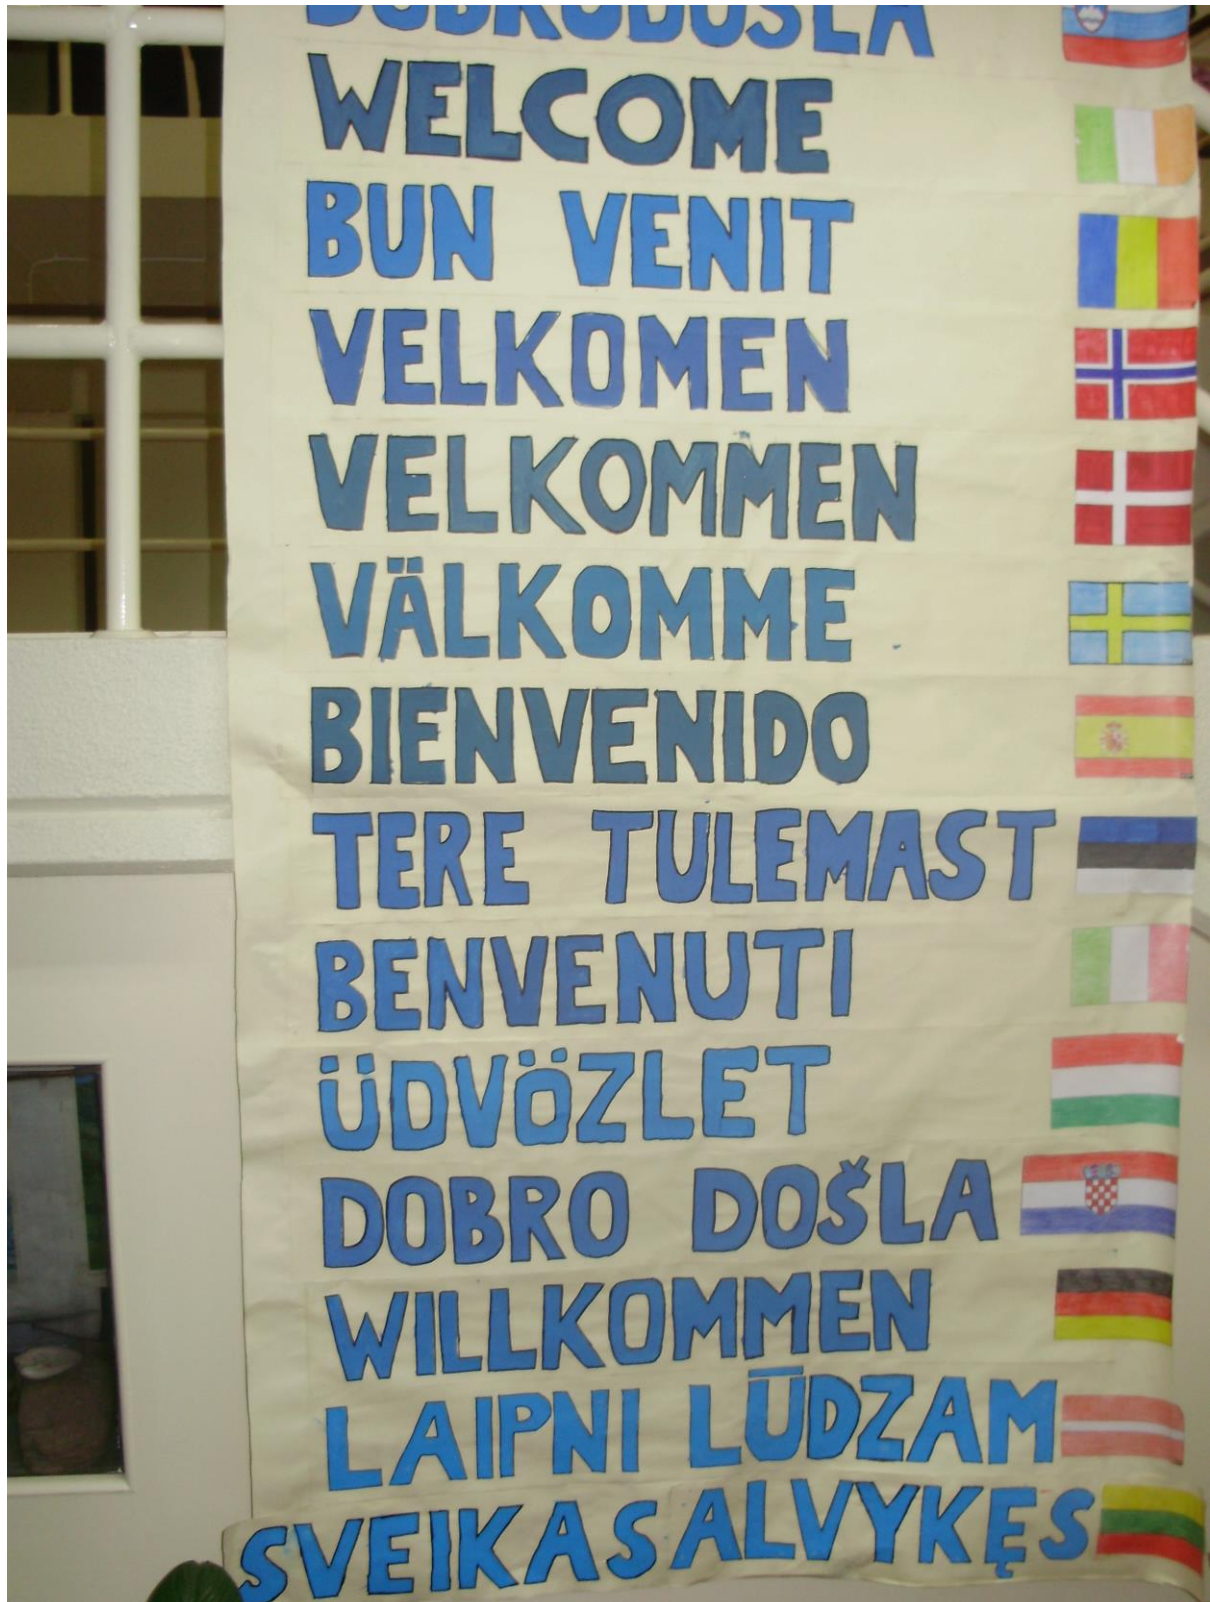 DOBRODOŠLA
WELCOME
BUN VENIT
VELKOMEN
VELKOMMEN
VÄLKOMME
BIENVENIDO
TERE TULEMAST
BENVENUTI
ÜDVÖZLET
DOBRO DOŠLA
WILLKOMMEN
LAIPNI LŪDZAM
SVEIKAS ALVYKĘS